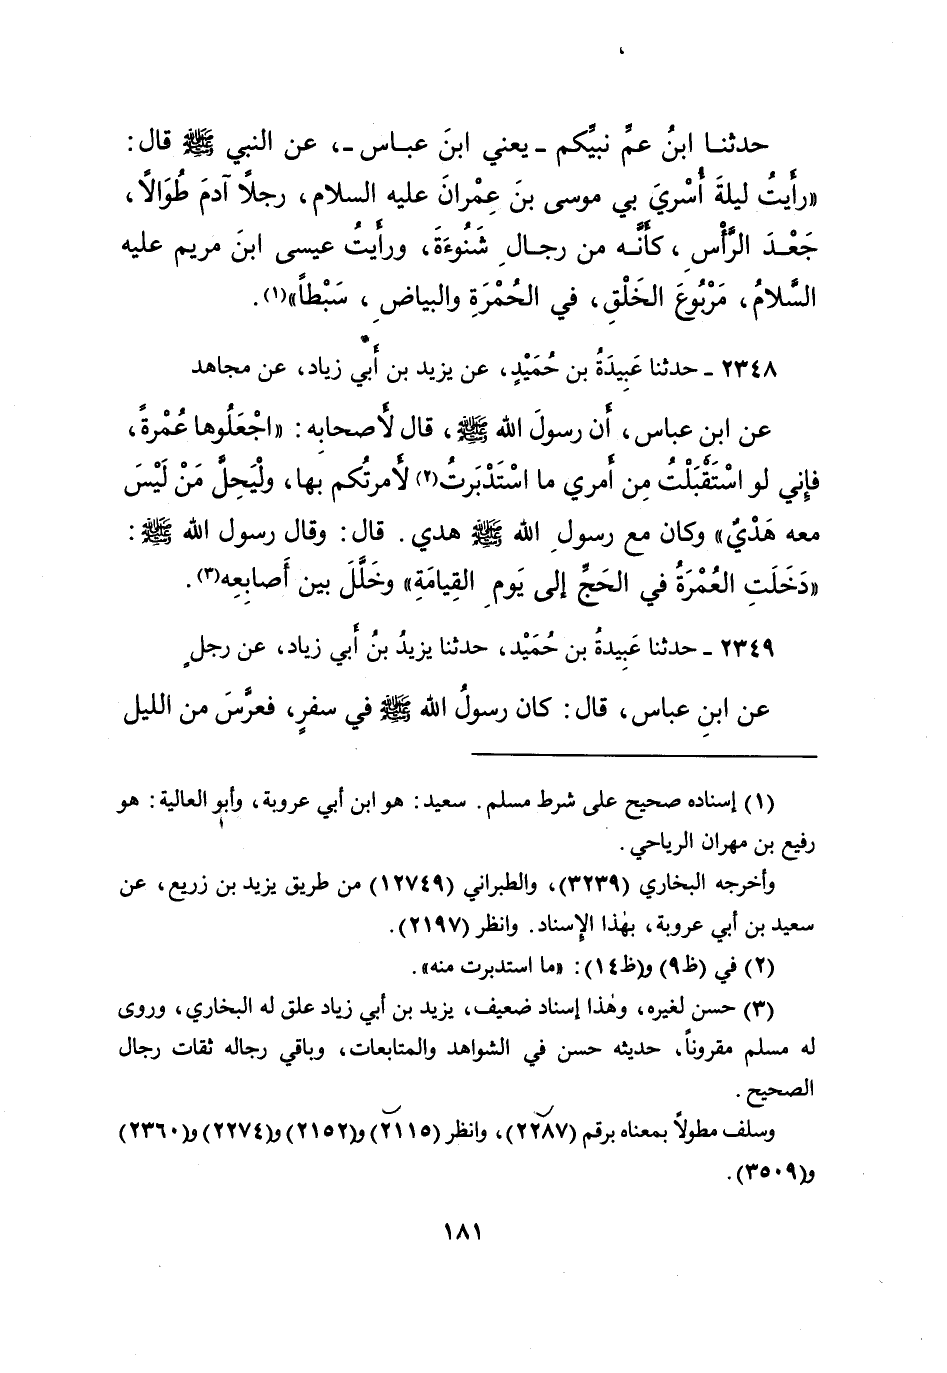 حدثنا ابنُ عمِّ نبيِّكم ـ يعني ابنَ عباس ـ، عن النبي ﷺ قال:
«رأَيتُ ليلةَ أُسْريَ بي موسى بنَ عِمْرانَ عليه السلام، رجلًا آدمَ طُوَالًا،
جَعْدَ الرَّأْسِ، كأَنَّه من رجالِ شَنُوءَةَ، ورأَيتُ عيسى ابنَ مريم عليه
السَّلامُ، مَرْبُوعَ الخَلْقِ، في الحُمْرَةِ والبياضِ، سَبْطاً»(١).
٢٣٤٨ ـ حدثنا عَبِيدَةُ بن حُمَيْدٍ، عن يزيد بن أَبي زياد، عن مجاهد
عن ابن عباس، أَن رسولَ الله ﷺ، قال لأَصحابِه: «اجْعَلُوها عُمْرةً،
فإِني لو اسْتَقْبَلْتُ مِن أَمري ما اسْتَدْبَرتُ(٢) لأَمرتُكم بها، ولْيَحِلَّ مَنْ لَيْسَ
معه هَدْيٌ» وكان مع رسولِ الله ﷺ هدي. قال: وقال رسول الله ﷺ:
«دَخَلَتِ العُمْرَةُ في الحَجِّ إلى يَومِ القِيامَةِ» وخَلَّلَ بين أَصابِعِه(٣).
٢٣٤٩ ـ حدثنا عَبِيدةُ بن حُمَيْد، حدثنا يزيدُ بنُ أَبي زياد، عن رجلٍ
عن ابنِ عباس، قال: كان رسولُ الله ﷺ في سفرٍ، فعرَّسَ من الليل
(١) إسناده صحيح على شرط مسلم. سعيد: هو ابن أبي عروبة، وأبو العالية: هو
رفيع بن مهران الرياحي.
وأخرجه البخاري (٣٢٣٩)، والطبراني (١٢٧٤٩) من طريق يزيد بن زريع، عن
سعيد بن أبي عروبة، بهٰذا الإِسناد. وانظر (٢١٩٧).
(٢) في (ظ٩) و(ظ١٤): «ما استدبرت منه».
(٣) حسن لغيره، وهٰذا إسناد ضعيف، يزيد بن أبي زياد علق له البخاري، وروى
له مسلم مقروناً، حديثه حسن في الشواهد والمتابعات، وباقي رجاله ثقات رجال
الصحيح.
وسلف مطولاً بمعناه برقم (٢٢٨٧)، وانظر (٢١١٥) و(٢١٥٢) و(٢٢٧٤) و(٢٣٦٠)
و(٣٥٠٩).
١٨١